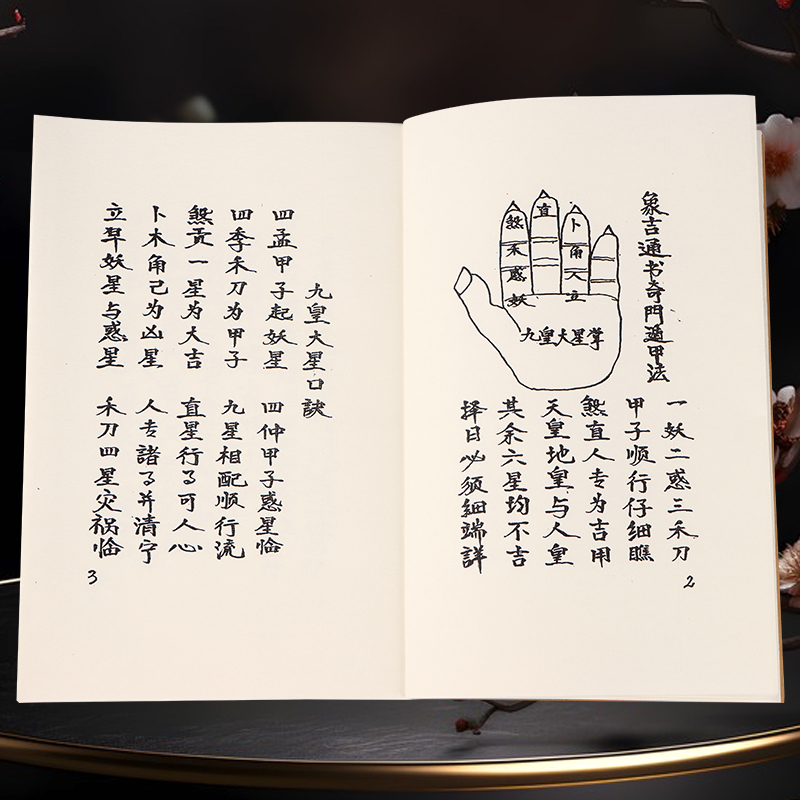 象吉通书奇門遁甲法
煞
禾
惑
妖
直
卜
角
人
立
九皇大星掌
一妖二惑三禾刀
甲子顺行仔细瞧
煞直人专为吉用
天皇地皇与人皇
其余六星均不吉
择日必须细端詳
2
九皇大星口訣
四孟甲子起妖星 四仲甲子惑星临
四季禾刀为甲子 九星相配顺行流
煞贡一星为大吉 直星行事可人心
卜木角己为凶星 人专諸事并清宁
立早妖星与惑星 禾刀四星灾祸临
3